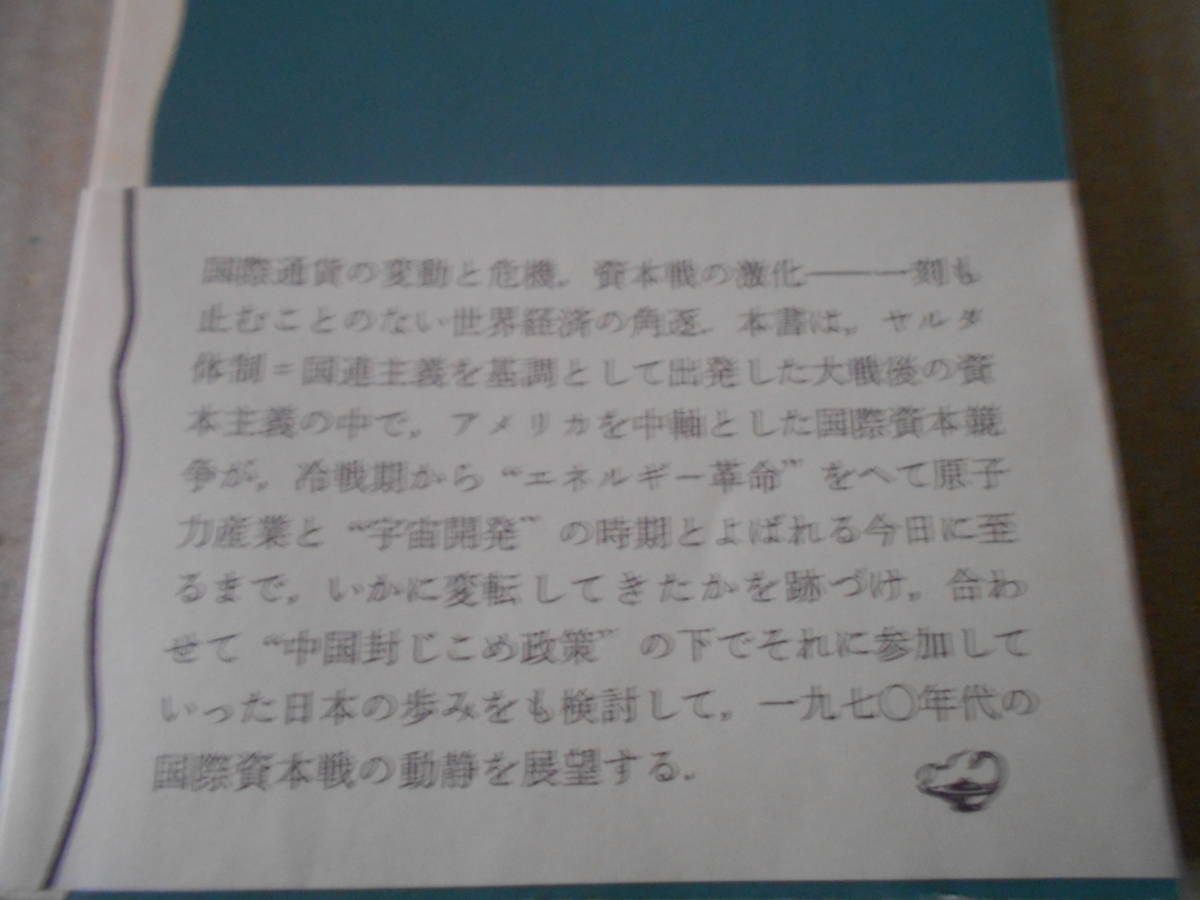 国際通貨の変動と危機，資本戦の激化――一刻も
止むことのない世界経済の角逐．本書は，ヤルタ
体制＝国連主義を基調として出発した大戦後の資
本主義の中で，アメリカを中軸とした国際資本競
争が，冷戦期から“エネルギー革命”をへて原子
力産業と“宇宙開発”の時期とよばれる今日に至
るまで，いかに変転してきたかを跡づけ，合わ
せて“中国封じこめ政策”の下でそれに参加して
いった日本の歩みをも検討して，一九七〇年代の
国際資本戦の動静を展望する．